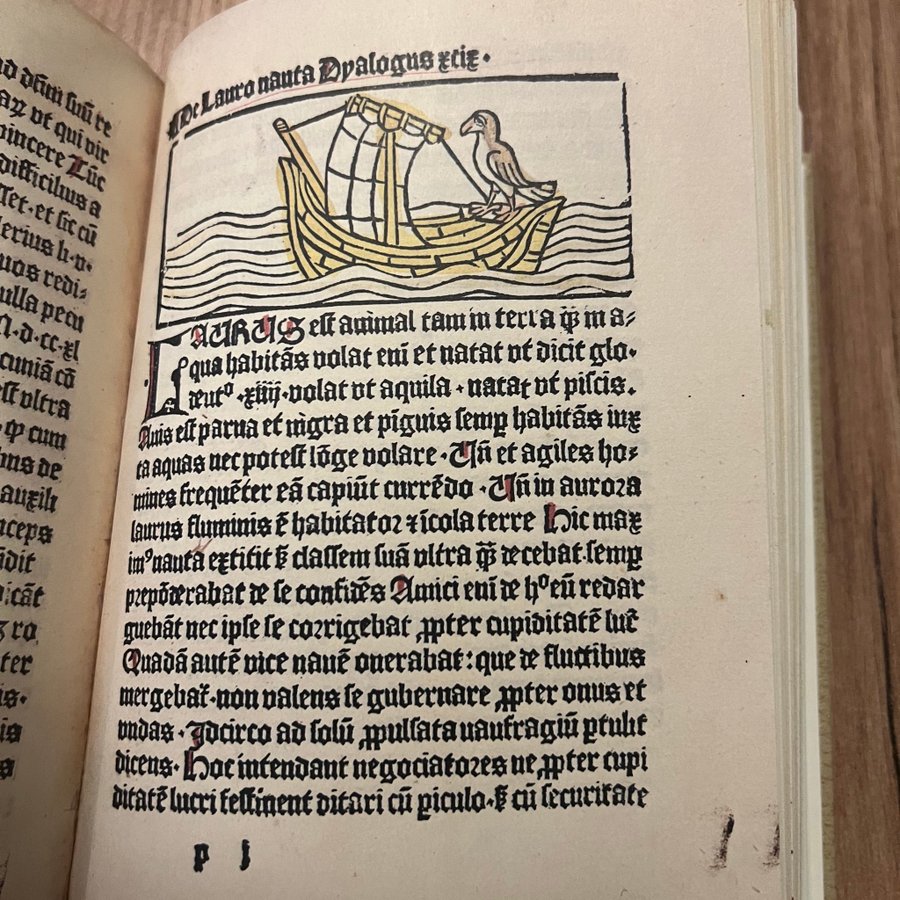 vt qui vir
vincere Lūc
difficilius a
et sic cū
redi⸗
ulla pecu
cuniā cō
est vltra
cum
de
auxili
nceps
dit
cāt
ro
ter
is·
is
s
De Lauro nauta Dyalogus xcix·
LAURUS est animal tam in terra qͫ in a⸗
qua habitās volat eni et natat vt dicit glo·
deutꝰ ·xiiij·volat vt aquila · natat vt piscis.
Auis est parua et nigra et pīguis semꝑ habitās iux
ta aquas nec potest lōge volare · Uñ et agiles ho⸗
mines frequēter eā capiūt currēdo · Uñ in aurora
laurus fluminis ē habitator ⁊ īcola terre Hic max
imꝰ nauta extitit ꝭ classem suā vltra qͫ decebat semꝑ
prepōderabat de se confidēs Amici eni de hͦ eū redar
guebāt nec ipse se corrigebat ꝓpter cupiditatē luc̄
Quadā autē vice nauē onerabat: que de fluctibus
mergebat̄·non valens se gubernare ꝓpter onus et
vndas · Idcirco ad solū ꝓpulsata naufragiū ꝑtulit
dicens· Hoc intendant negociatores ne ꝓpter cupi
ditatē lucri festinent ditari cū ꝑiculo·ꝭ cū securitate
p j